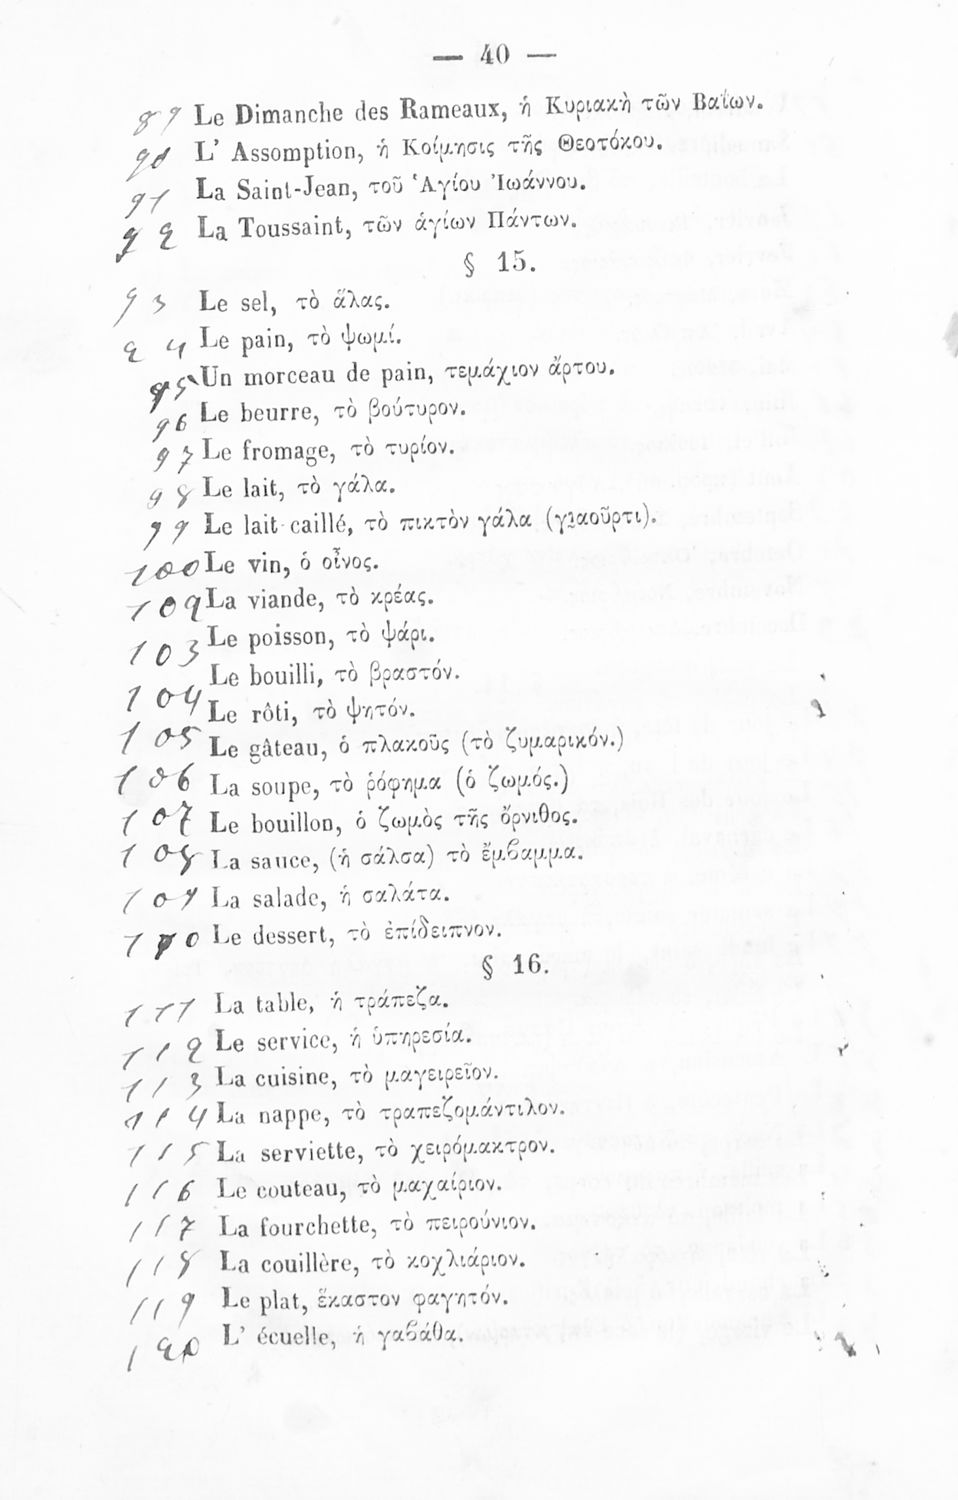 — 40 —
89 Le Dimanche des Rameaux, ἡ Κυριακὴ τῶν Βαΐων.
90 L' Assomption, ἡ Κοίμησις τῆς Θεοτόκου.
91 La Saint-Jean, τοῦ Ἁγίου Ἰωάννου.
92 La Toussaint, τῶν ἁγίων Πάντων.
§ 15.
93 Le sel, τὸ ἅλας.
94 Le pain, τὸ ψωμί.
95 Un morceau de pain, τεμάχιον ἄρτου.
96 Le beurre, τὸ βούτυρον.
97 Le fromage, τὸ τυρίον.
98 Le lait, τὸ γάλα.
99 Le lait caillé, τὸ πικτὸν γάλα (γιαοῦρτι).
100 Le vin, ὁ οἶνος.
102 La viande, τὸ κρέας.
103 Le poisson, τὸ ψάρι.
Le bouilli, τὸ βραστόν.
104 Le rôti, τὸ ψητόν.
105 Le gâteau, ὁ πλακοῦς (τὸ ζυμαρικόν.)
106 La soupe, τὸ ῥόφημα (ὁ ζωμός.)
107 Le bouillon, ὁ ζωμὸς τῆς ὄρνιθος.
108 La sauce, (ἡ σάλσα) τὸ ἔμβαμμα.
109 La salade, ἡ σαλάτα.
110 Le dessert, τὸ ἐπίδειπνον.
§ 16.
111 La table, ἡ τράπεζα.
112 Le service, ἡ ὑπηρεσία.
113 La cuisine, τὸ μαγειρεῖον.
114 La nappe, τὸ τραπεζομάντιλον.
115 La serviette, τὸ χειρόμακτρον.
116 Le couteau, τὸ μαχαίριον.
117 La fourchette, τὸ πειρούνιον.
118 La couillère, τὸ κοχλιάριον.
119 Le plat, ἕκαστον φαγητόν.
120 L' écuelle, ἡ γαβάθα.